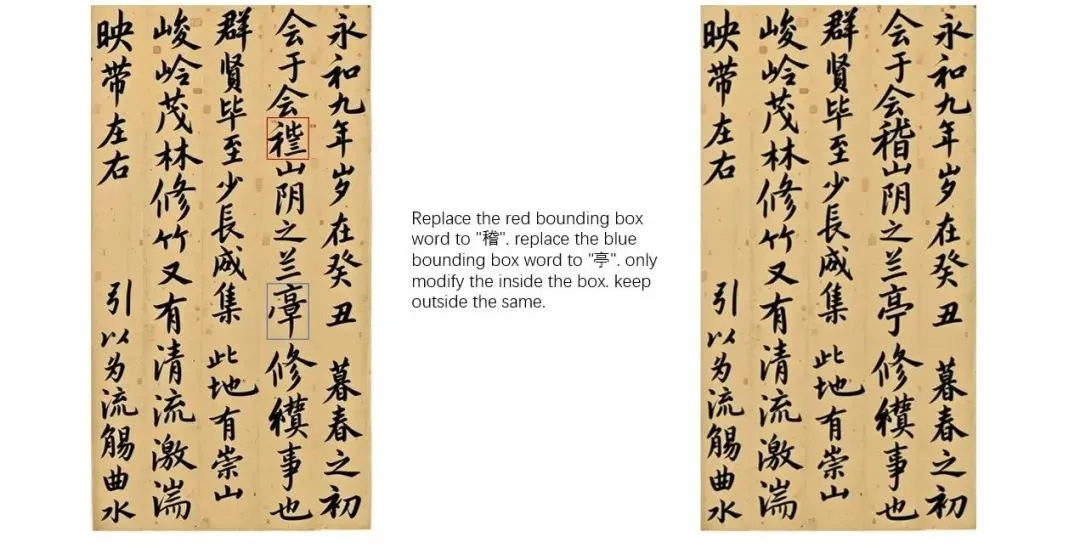 永和九年岁在癸丑 暮春之初
会于会山阴之兰 修事也
群贤毕至少長咸集 此地有崇山
峻岭茂林修竹又有清流激湍
映带左右 引以为流觞曲水
Replace the red bounding box
word to "稽". replace the blue
bounding box word to "亭". only
modify the inside the box. keep
outside the same.
永和九年岁在癸丑 暮春之初
会于会稽山阴之兰亭 修事也
群贤毕至少長咸集 此地有崇山
峻岭茂林修竹又有清流激湍
映带左右 引以为流觞曲水